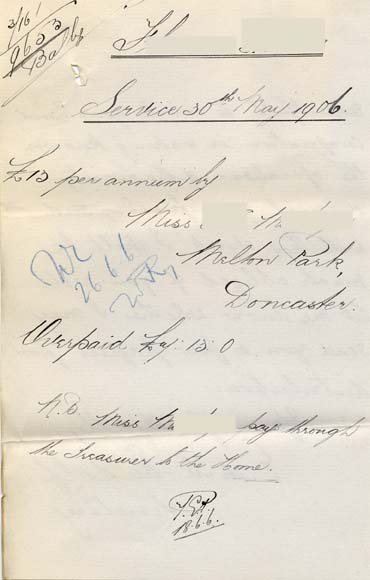 3/16/
9633
Service 30th May 1906.
£13 per annum by
Miss M
Melton Park,
Doncaster.
2666
Overpaid 15. 0
N.B. Miss pay through
the Treasurer to the Home.
18.6.6.